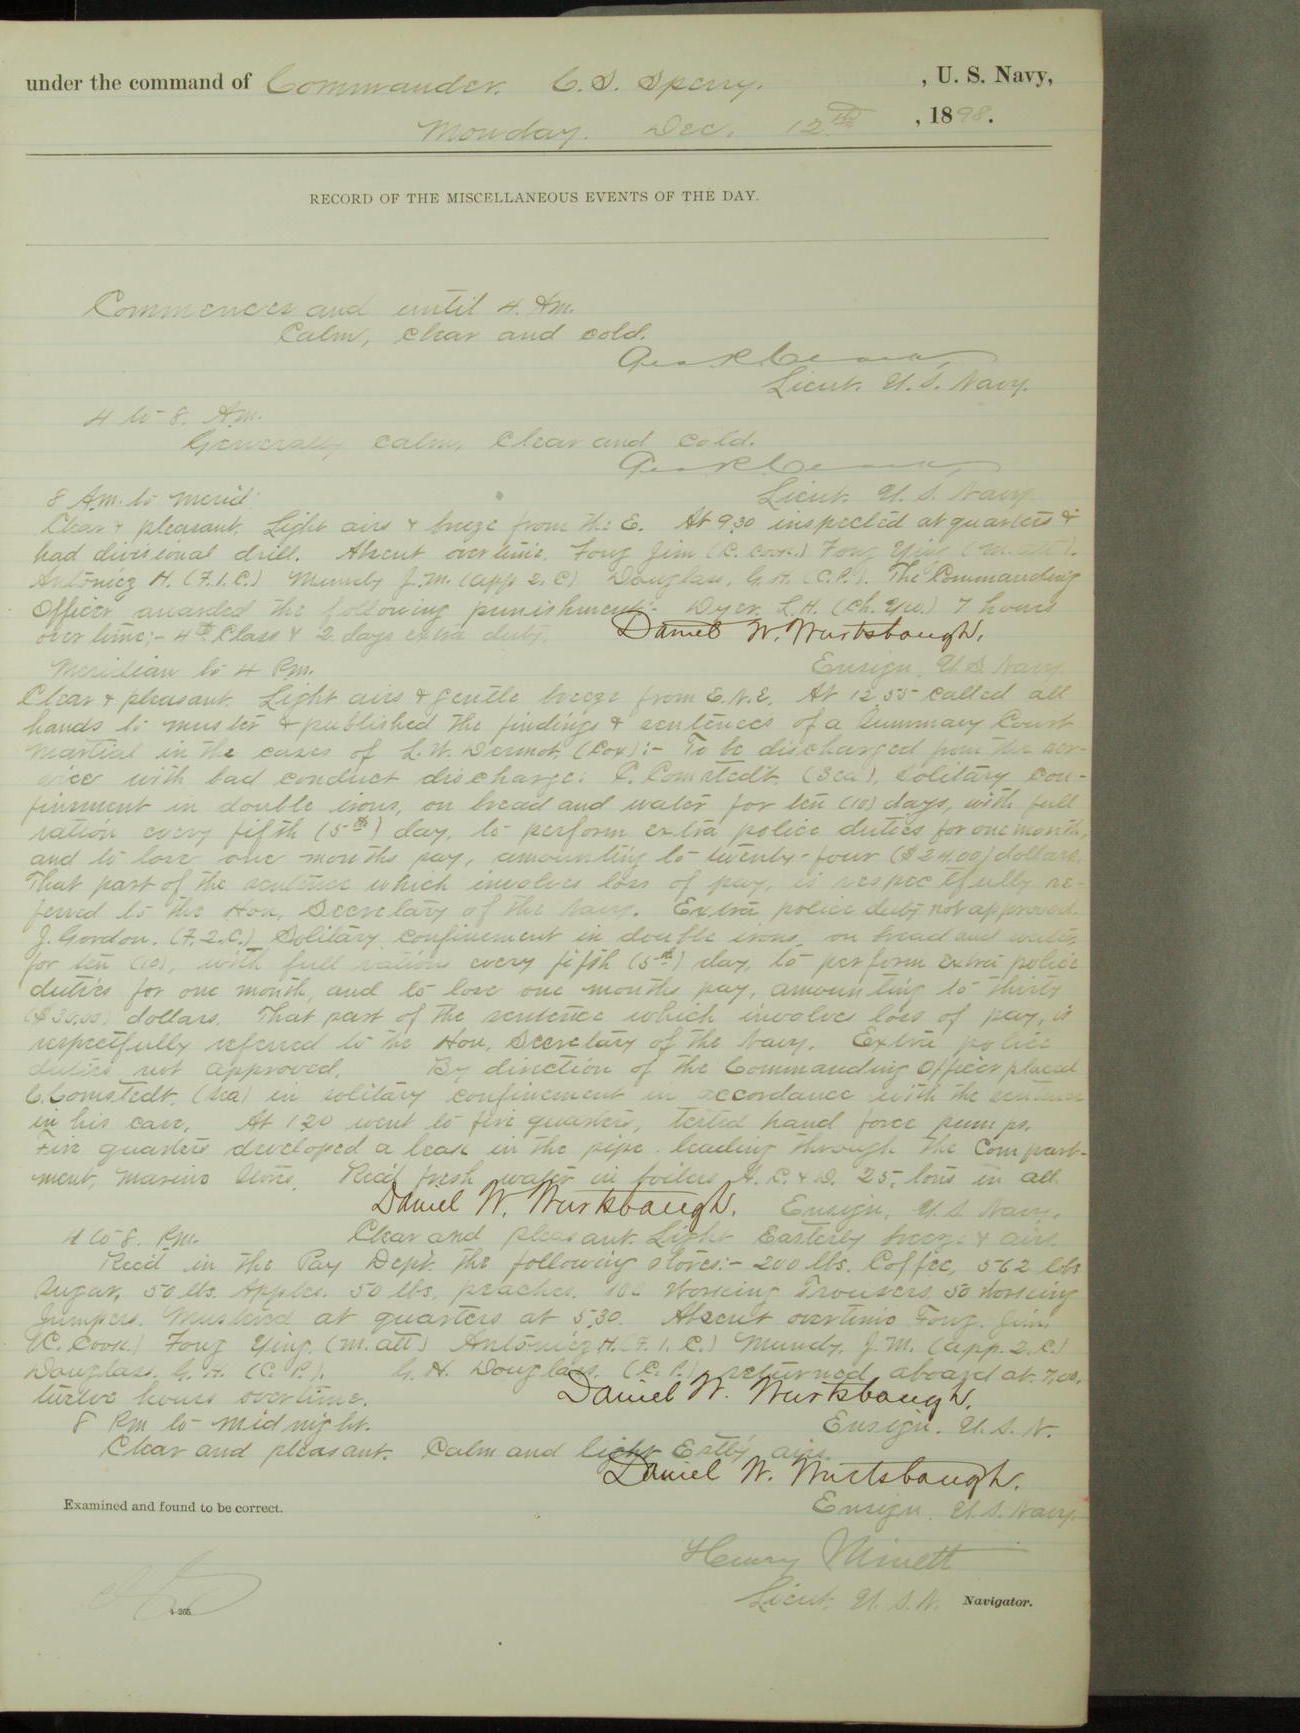 under the command of Commander. C. S. Sperry. , U. S. Navy,
Monday. Dec. 12th , 1898.
RECORD OF THE MISCELLANEOUS EVENTS OF THE DAY.
Commences and until 4. Am.
Calm, clear and cold.
Lieut. U. S. Navy.
4 to 8. Am.
Generally calm, clear and cold.
8 Am. to Merid.
Lieut. U. S. Navy
Clear & pleasant. Light airs & breeze from the E. At 9.30 inspected at quarters &
had divisional drill. Absent over time. Fong Jim (C. Cook.) Fong Ying (M. att).
Antônicz H. (F.1.C.) Mundy J.M. (app 2. C) Douglass. G. H. (C.P.). The Commanding
Officer awarded the following punishment:- Dyer, L.H. (Ch. Yeo.) 7 hours
over time;- 4th Class & 2 days extra duty. Daniel W. Wurtsbaugh.
Meridian to 4 Pm. Ensign. U S Navy
Clear & pleasant. Light airs & gentle breeze from E.N.E. At 12.55 called all
hands to muster & published the findings & sentences of a Summary Court
Martial in the cases of L. W. Dermot. (Cox):- To be discharged from the ser-
vice with bad conduct discharge: C. Comstedt. (Sea), solitary con-
finement in double irons, on bread and water for ten (10) days, with full
ration every fifth (5th) day, to perform extra police duties for one month,
and to lose one months pay, amounting to twenty-four ($24.00) dollars.
That part of the sentence which involves loss of pay, is respectfully re-
ferred to the Hon. Secretary of the Navy. Extra police duty not approved.
J. Gordon. (F.2.C.) Solitary confinement in double irons, on bread and water
for ten (10), with full rations every fifth (5th) day, to perform extra police
duties for one month, and to lose one months pay, amounting to thirty
($30.00) dollars. That part of the sentence which involves loss of pay, is
respectfully referred to the Hon. Secretary of the Navy. Extra police
duties not approved. By direction of the Commanding Officer placed
C. Comstedt. (Sea) in solitary confinement in accordance with the sentence
in his case. At 1.20 went to fire quarters, tested hand force pumps.
Fire quarters developed a leak in the pipe leading through the Compart-
ment, Marine Stores. Rec'd fresh water in boilers A. C. & D. 25, tons in all.
Daniel W. Wurtsbaugh. Ensign. U. S. Navy.
4 to 8. Pm. Clear and pleasant. Light Easterly breeze & airs.
Rec'd in the Pay Dept. the following stores:- 200 lbs. Coffee, 562 lbs
Sugar, 50 lbs. Apples. 50 lbs. peaches. Working Trousers, 50 Working
Jumpers. Mustered at quarters at 5.30. Absent overtime Fong. Jim.
(C. Cook.) Fong Ying. (M. att) Antônicz H. (F. 1. C.) Mundy. J. M. (app. 2. C.)
Douglass. G. H. (C. P.). G. H. Douglass. (C. P.) returned aboard at
twelve hours overtime. Daniel W. Wurtsbaugh.
8 Pm to midnight. Ensign. U. S. N.
Clear and pleasant. Calm and light Estly airs.
Daniel W. Wurtsbaugh.
Examined and found to be correct. Ensign. U. S. Navy.
Henry Minett
Lieut. U. S. N. Navigator.
4-265